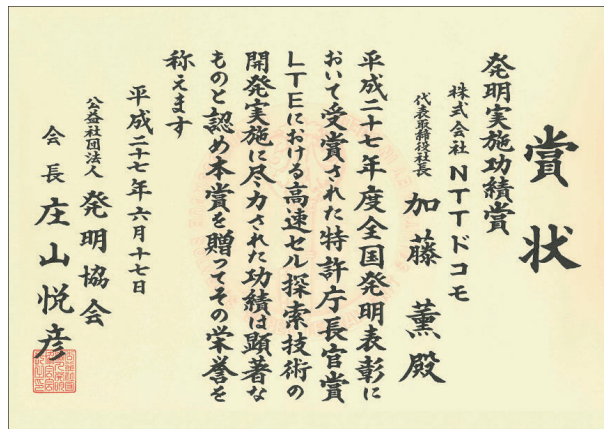 賞状
発明実施功績賞
株式会社NTTドコモ
代表取締役社長 加藤 薫殿
平成二十七年度全国発明表彰に
おいて受賞された特許庁長官賞
LTEにおける高速セル探索技術の
開発実施に尽力された功績は顕著な
ものと認め本賞を贈ってその栄誉を
称えます
平成二十七年六月十七日
公益社団法人 発明協会
会長 庄山悦彦